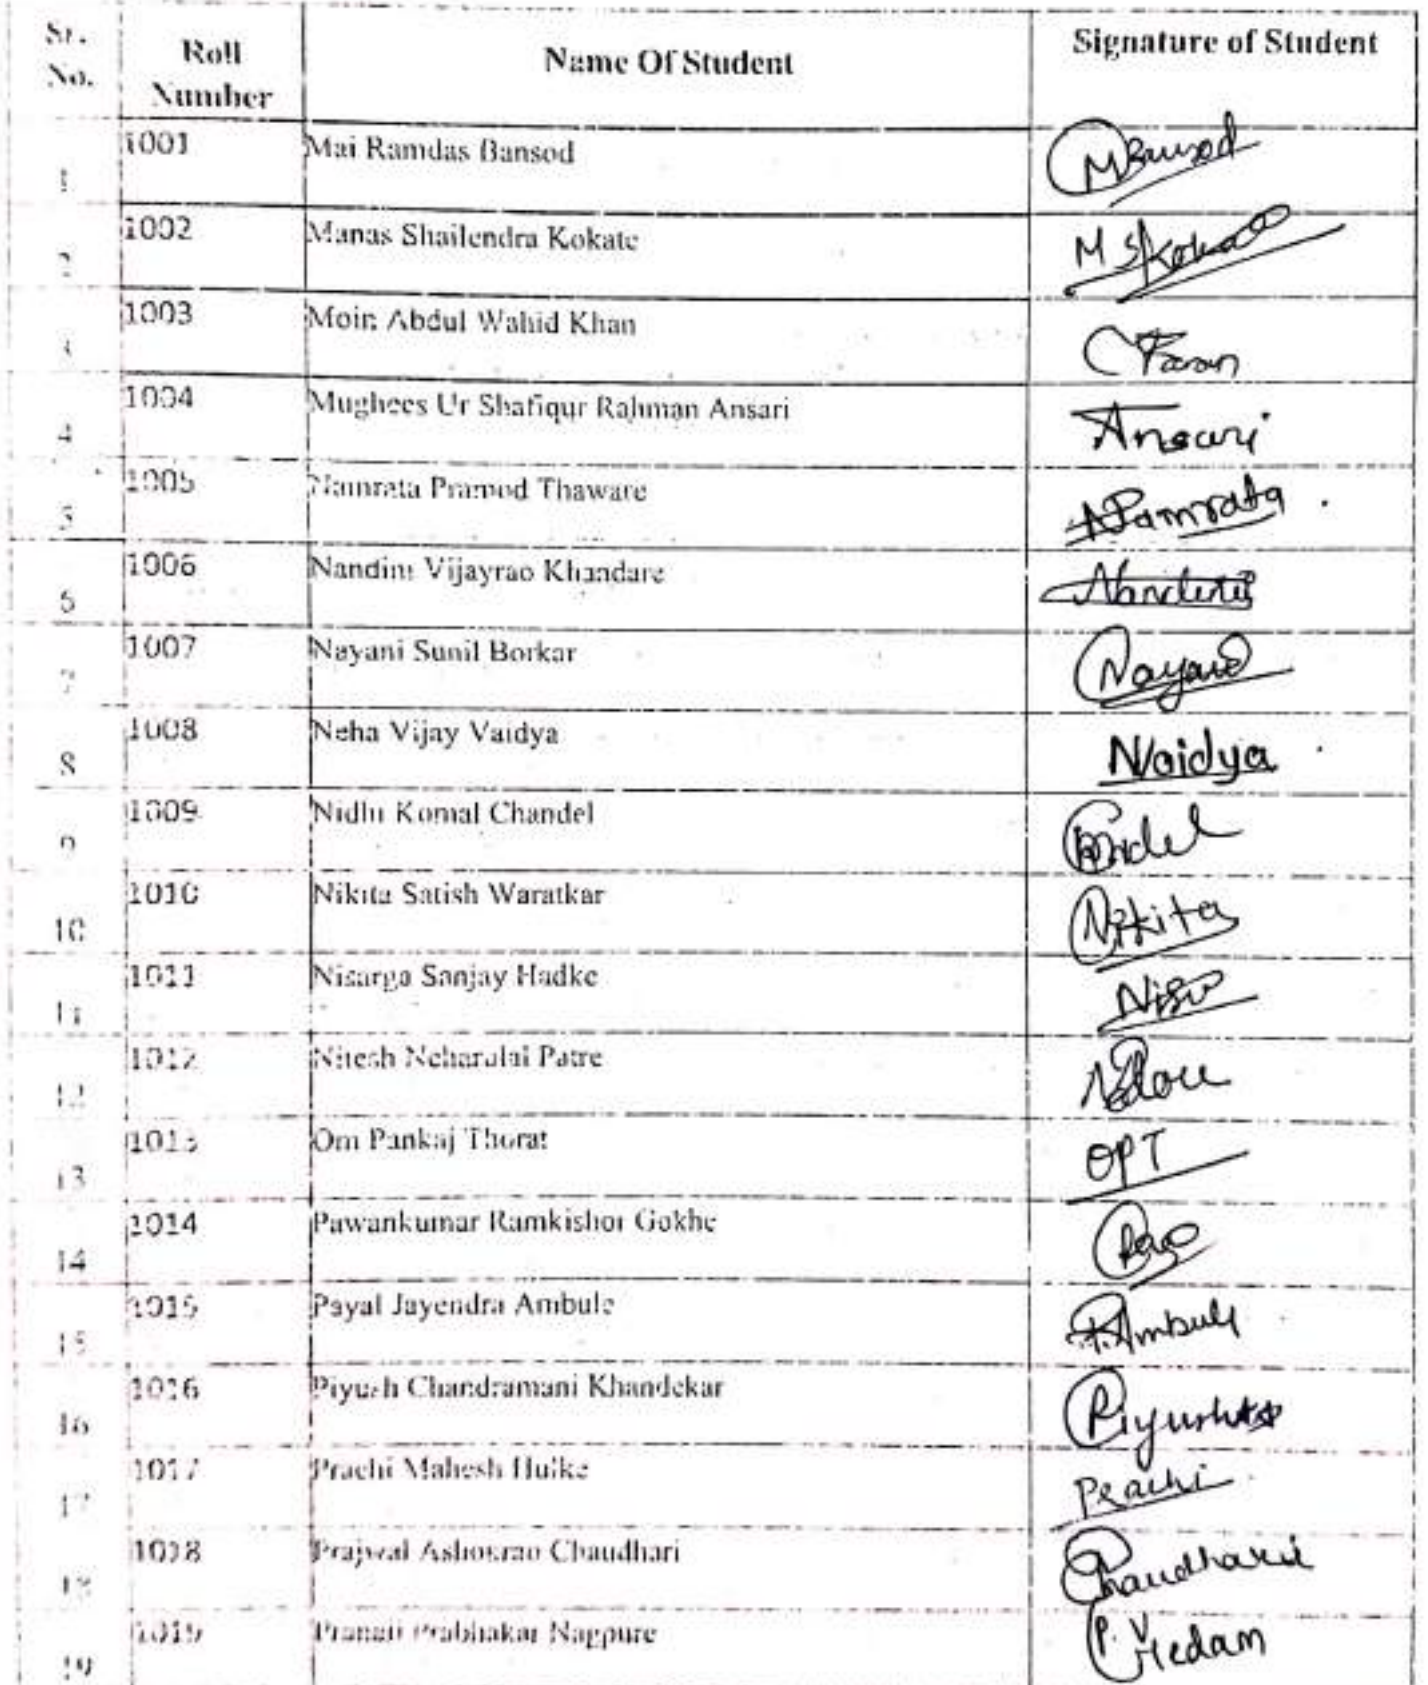 Sr. No. Roll Number Name Of Student Signature of Student
1 1001 Mai Ramdas Bansod MBansod
2 1002 Manas Shailendra Kokate M S Kokate
3 1003 Moin Abdul Wahid Khan
4 1004 Mughees Ur Shafiqur Rahman Ansari Ansari
5 1005 Namrata Pramod Thaware Namrata
6 1006 Nandini Vijayrao Khandare Nandini
7 1007 Nayani Sunil Borkar Nayani
8 1008 Neha Vijay Vaidya NVaidya
9 1009 Nidhi Komal Chandel
10 1010 Nikita Satish Waratkar Nikita
11 1011 Nisarga Sanjay Hadke
12 1012 Nitesh Neharulal Patre
13 1013 Om Pankaj Thorat OPT
14 1014 Pawankumar Ramkishor Gokhe
15 1015 Payal Jayendra Ambule P.Ambule
16 1016 Piyush Chandramani Khandekar Piyush
17 1017 Prachi Mahesh Hulke Prachi
18 1018 Prajwal Ashokrao Chaudhari Chaudhari
19 1019 Pranali Prabhakar Nagpure P. Medam